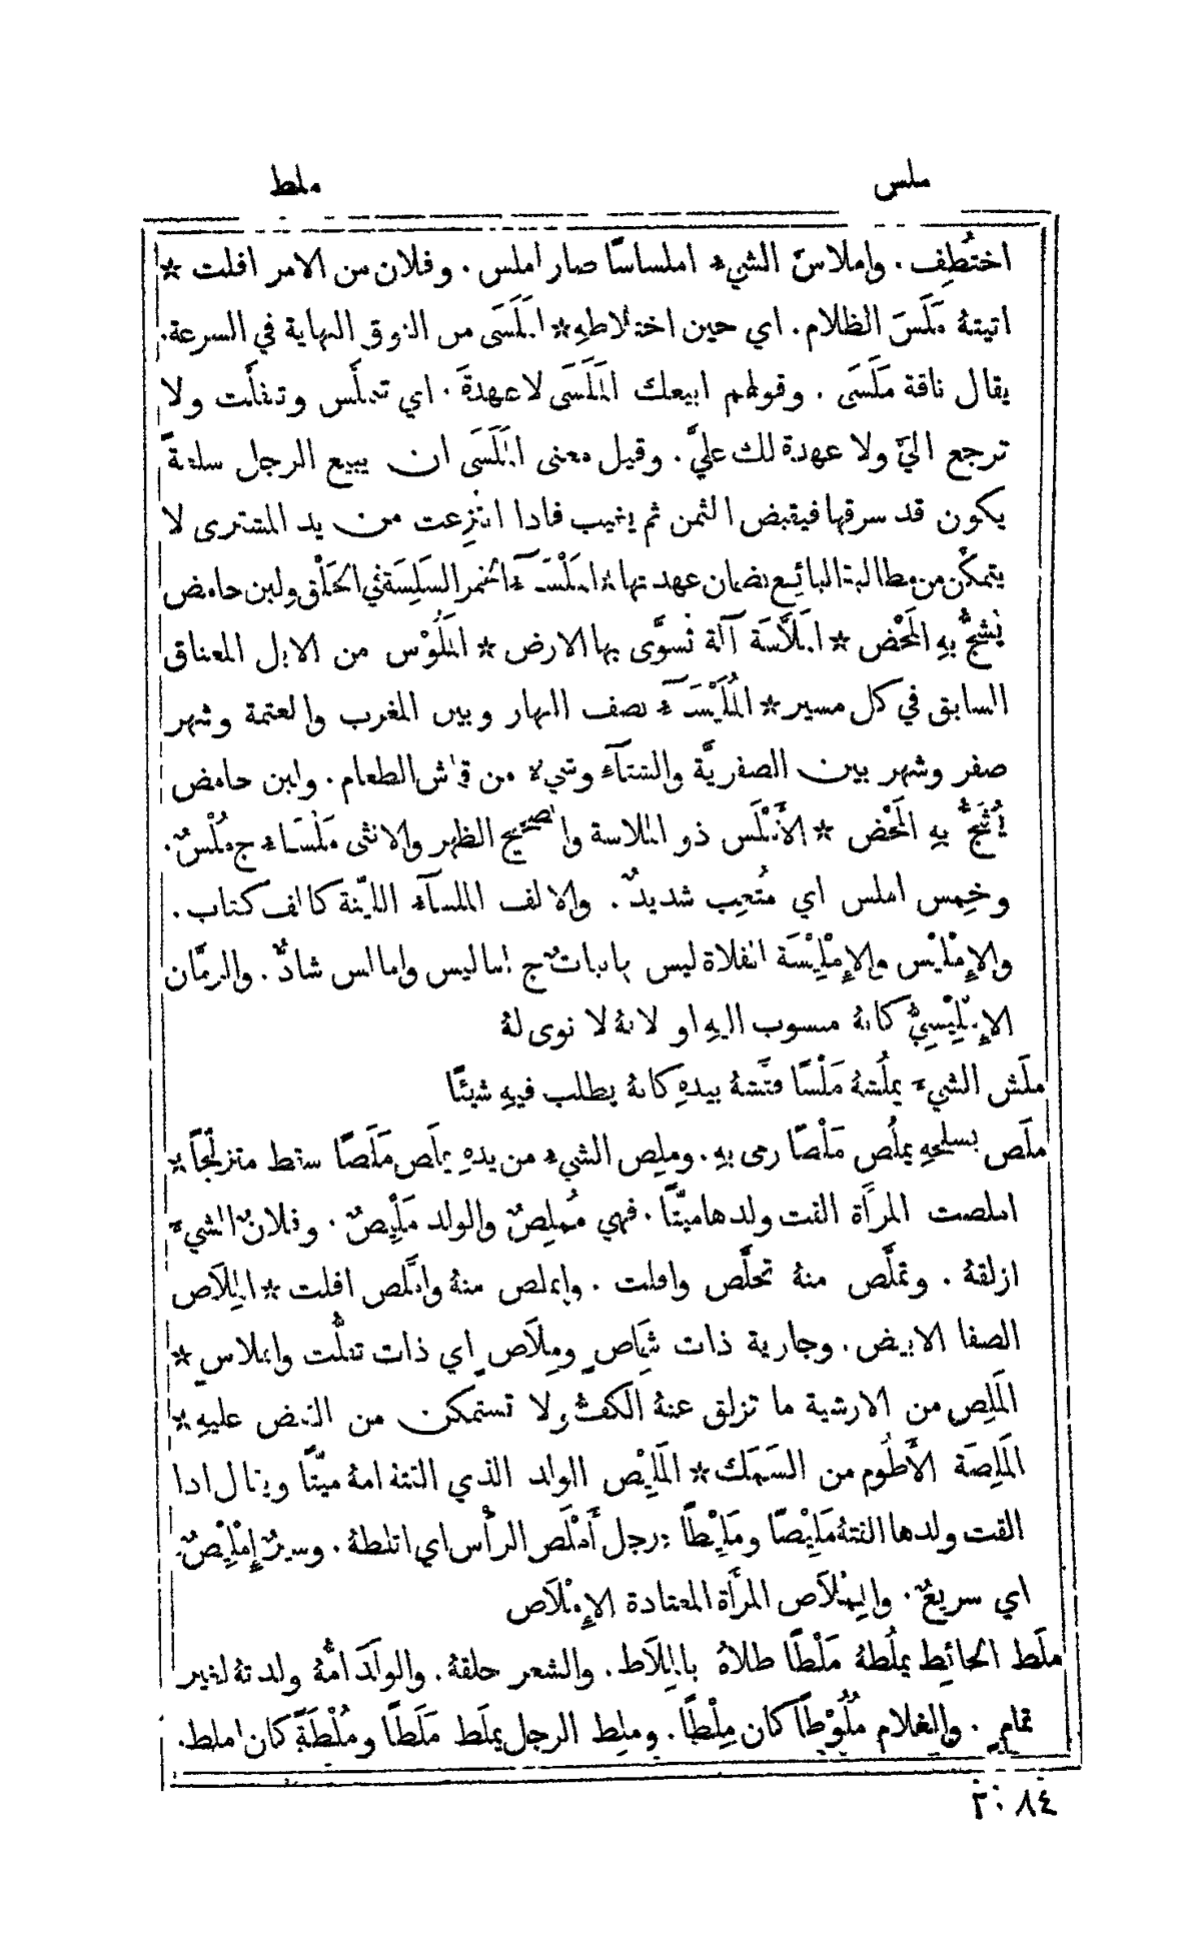 ملس
ملط
اختُطِف . واملاسّ الشيء املساسًا صار املس . وفلان من الامر افلت *
اتيتهُ مَلَسَ الظلام . اي حين اختلاطهِ * المَلَسَى من النوق النهاية في السرعة .
يقال ناقة مَلَسَى . وقولهم ابيعك المَلَسَى لا عهدةَ . اي تتملّس وتتفلّت ولا
ترجع اليَّ ولا عهدة لك عليَّ . وقيل معنى المَلَسَى ان يبيع الرجل سلعةً
يكون قد سرقها فيقبض الثمن ثم يغيب فاذا انتزِعت من يد المشترى لا
يتمكّن من مطالبة البائع بضمان عهدتها * المَلْسَآء الخمر السَلِسَة في الحَلْق ولبن حامض
يُشَجُّ بهِ المَحْض * المَلَّاسَة آلة تُسوَّى بها الارض * المَلُوْس من الابل المعناق
السابق في كل مسير * المُلَيْسَآء نصف النهار وبين المغرب والعتمة وشهر
صفر وشهر بين الصفريَّة والشتآء وشيء من قماش الطعام . ولبن حامض
يُشَجُّ بهِ المَحْض * الأَمْلَس ذو الملاسة والصحيح الظهر والانثى مَلْسَاء ج مُلْسٌ .
وخِمس املس اي مُتعِب شديدٌ . والالف الملسآء الليّنة كالف كتاب .
والإِمْلِيْس والإِمْلِيْسَة الفلاة ليس بها نباتٌ ج اماليس وامالس شاذٌّ . والرمَّان
الإِمْلِيْسِيُّ كانهُ منسوب اليهِ او لانهُ لا نوى لهُ
ملَش الشيء يملُشهُ مَلْشًا فتَّشهُ بيدهِ كانهُ يطلب فيهِ شيئًا
ملَص بسلحهِ يملُص مَلْصًا رمى بهِ . وملِص الشيء من يدهِ يملَص مَلَصًا سقط متزلّجًا *
املصت المرأة القت ولدها ميّتًا . فهي مُملِصٌ والولد مَلِيْصٌ . وفلانٌ الشيء
ازلقهُ . وتملَّص منهُ تخلَّص وافلت . وانملص منهُ وامَّلص افلت * المِلَاص
الصفا الابيض . وجارية ذات شِمَاصٍ ومِلَاصٍ اي ذات تفلُّت وانملاس *
المَلِص من الارشية ما تزلق عنهُ الكفّ ولا تستمكن من القبض عليهِ *
المَلِصَة الأَطُوم من السَمَك * المَلِيْص الولد الذي القتهُ امهُ ميّتًا ويقال اذا
القت ولدها القتهُ مَلِيْصًا ومَلِيْطًا * رجل أَمْلَص الرأْس اي املطهُ . وسيرٌ إِمْلِيْصٌ
اي سريعٌ . والمِمْلَاص المرأة المعتادة الإِمْلَاص
ملَط الحائِط يملُطهُ مَلْطًا طلاهُ بالمِلَاط . والشعر حلقهُ . والولَدَ امُّهُ ولدتهُ لغير
تمامٍ . والغلام مُلُوْطًا كان مِلْطًا . وملِط الرجل يملَط مَلَطًا ومُلْطَةً كان املط .
٢٠٨٤